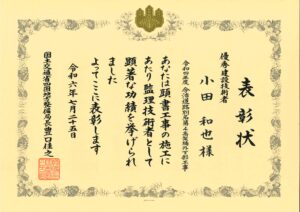 表彰状
優秀建設技術者
小田和也様
令和四年度 今治道路朝倉第4高架橋下部工事
あなたは頭書工事の施工に
あたり監理技術者として
顕著な功績を挙げられ
ました
よってここに表彰します
令和六年七月二十五日
国土交通省四国地方整備局長豊口佳之